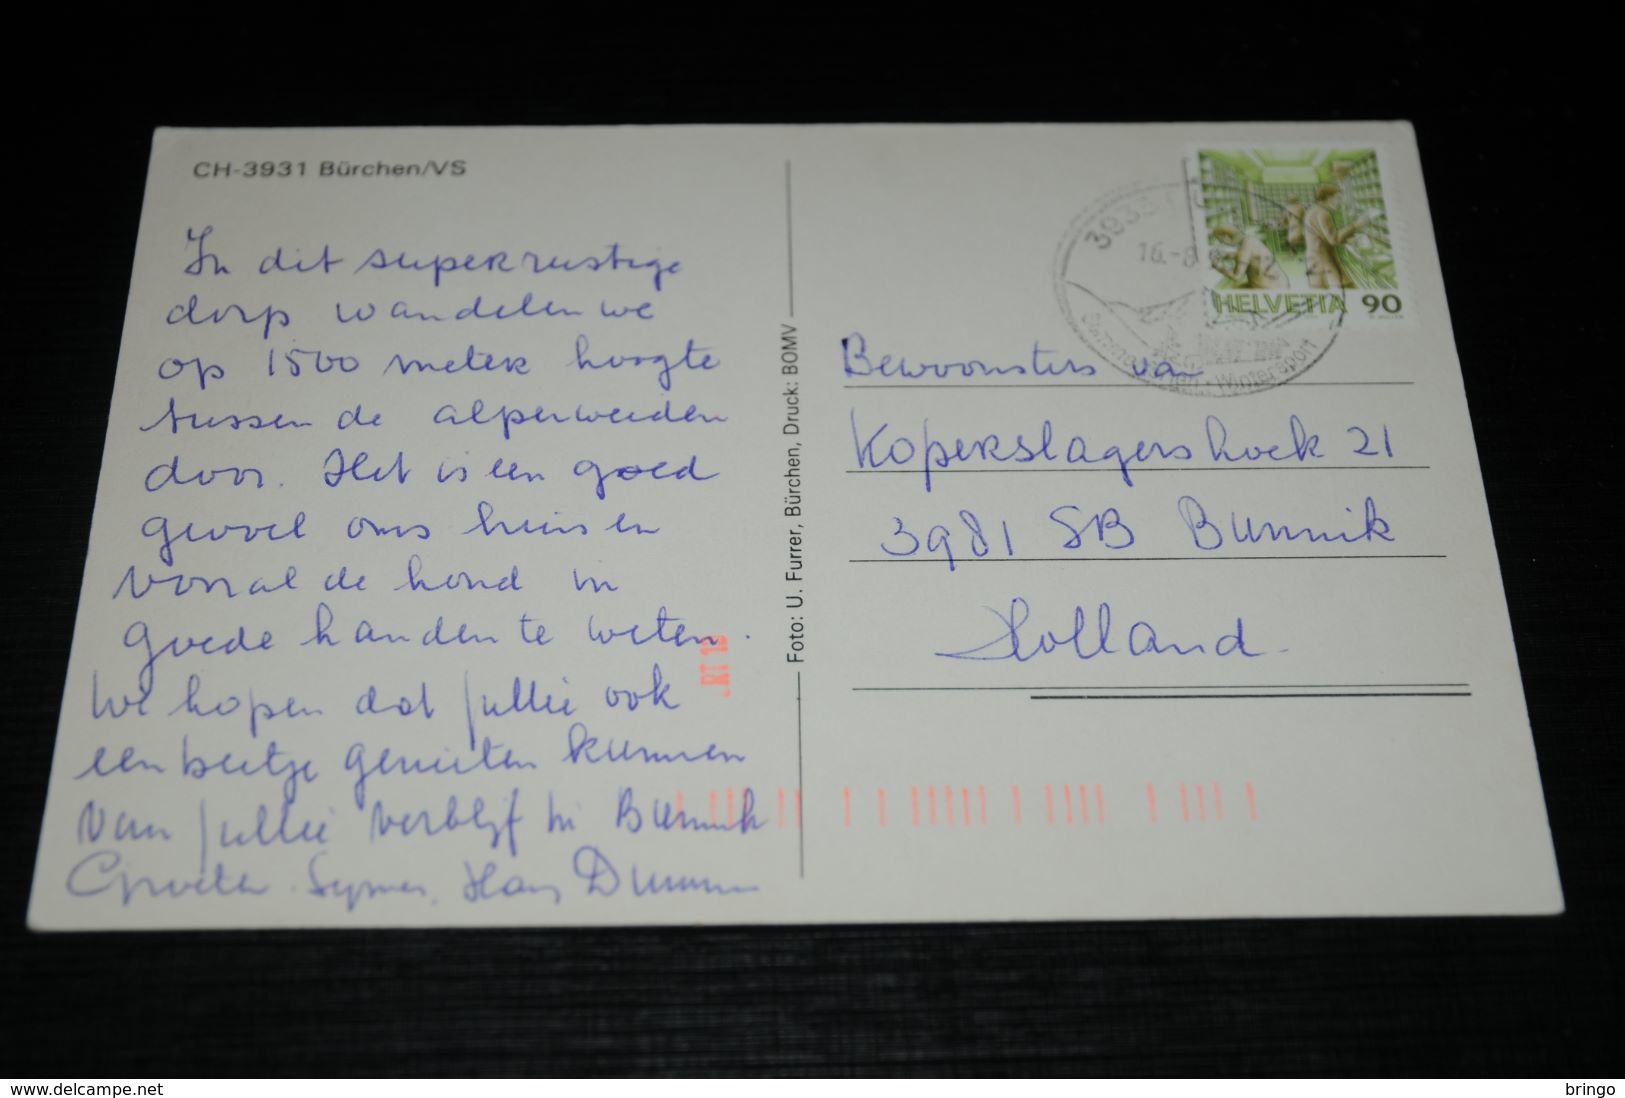 CH-3931 Bürchen/VS
In dit superrustige
dorp wandelen we
op 1500 meter hoogte
tussen de alperweiden
door. Het is een goed
gevoel ons huis en
vooral de hond in
goede handen te weten.
We hopen dat jullie ook
een beetje genieten kunnen
van jullie verblijf in Bunnik
Groeten. Hans
Foto: U. Furrer, Bürchen, Druck: BOMV
16.-8
HELVETIA 90
Wintersport
Bewoonsters van
Koperslagershoek 21
3981 SB Bunnik
Holland.
www.delcampe.net
bringo